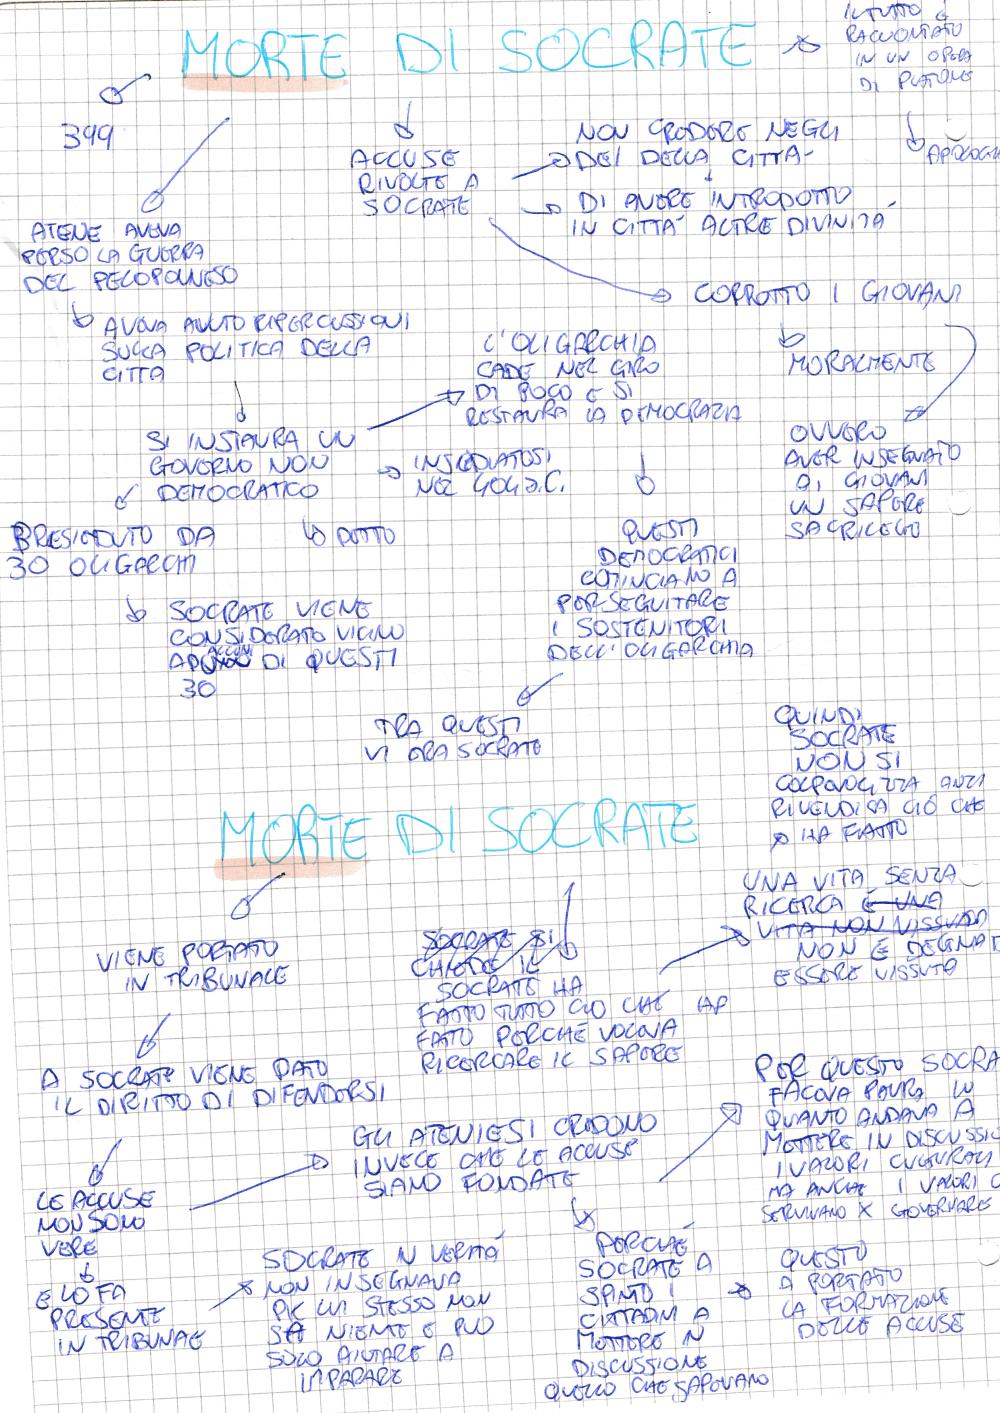 MORTE DI SOCRATE
IL TUTTO È
RACCONTATO
IN UN OPERA
DI PLATONE
APOLOGIA
399
ACCUSE
RIVOLTE A
SOCRATE
NON CREDERE NEGLI
DEI DELLA CITTÀ
DI AVERE INTRODOTTO
IN CITTÀ ALTRE DIVINITÀ
CORROTTO I GIOVANI
MORALMENTE
OVVERO
AVER INSEGNATO
AI GIOVANI
UN SAPERE
SACRILEGO
ATENE AVEVA
PERSO LA GUERRA
DEL PELOPONNESO
AVEVA AVUTO RIPERCUSSIONI
SULLA POLITICA DELLA
CITTA
SI INSTAURA UN
GOVERNO NON
DEMOCRATICO
L'OLIGARCHIA
CADE NEL GIRO
DI POCO E SI
RESTAURA LA DEMOCRAZIA
INSEDIATOSI
NEL 404 a.C.
PRESIEDUTO DA
30 OLIGARCHI
DETTO
SOCRATE VIENE
CONSIDERATO VICINO
AD ALCUNI DI QUESTI
30
QUESTI
DEMOCRATICI
COMINCIANO A
PERSEGUITARE
I SOSTENITORI
DELL'OLIGARCHIA
TRA QUESTI
VI ERA SOCRATE
MORTE DI SOCRATE
QUINDI
SOCRATE
NON SI
COLPEVOLIZZA ANZI
RIVENDICA CIÒ CHE
HA FATTO
UNA VITA SENZA
RICERCA È UNA
VITA NON VISSUTA
NON È DEGNA D
ESSERE VISSUTA
VIENE PORTATO
IN TRIBUNALE
SOCRATE SI
CHIEDE IL
SOCRATE HA
FATTO TUTTO CIO CHE HA
FATTO PERCHÉ VOLEVA
RICERCARE IL SAPERE
A SOCRATE VIENE DATO
IL DIRITTO DI DIFENDERSI
PER QUESTO SOCRA
FACEVA PAURA IN
QUANTO ANDAVA A
METTERE IN DISCUSSIO
I VALORI CULTURALI
MA ANCHE I VALORI C
SERVIVANO X GOVERNARE
GLI ATENIESI CREDONO
INVECE CHE LE ACCUSE
SIANO FONDATE
LE ACCUSE
NON SONO
VERE
E LO FA
PRESENTE
IN TRIBUNALE
SOCRATE IN VERITÁ
NON INSEGNAVA
PK LUI STESSO NON
SA NIENTE E PUO
SOLO AIUTARE A
IMPARARE
PERCHÉ
SOCRATE A
SPINTO I
CITTADINI A
METTERE IN
DISCUSSIONE
QUELLO CHE SAPEVANO
QUESTO
A PORTATO
LA FORMAZIONE
DELLE ACCUSE